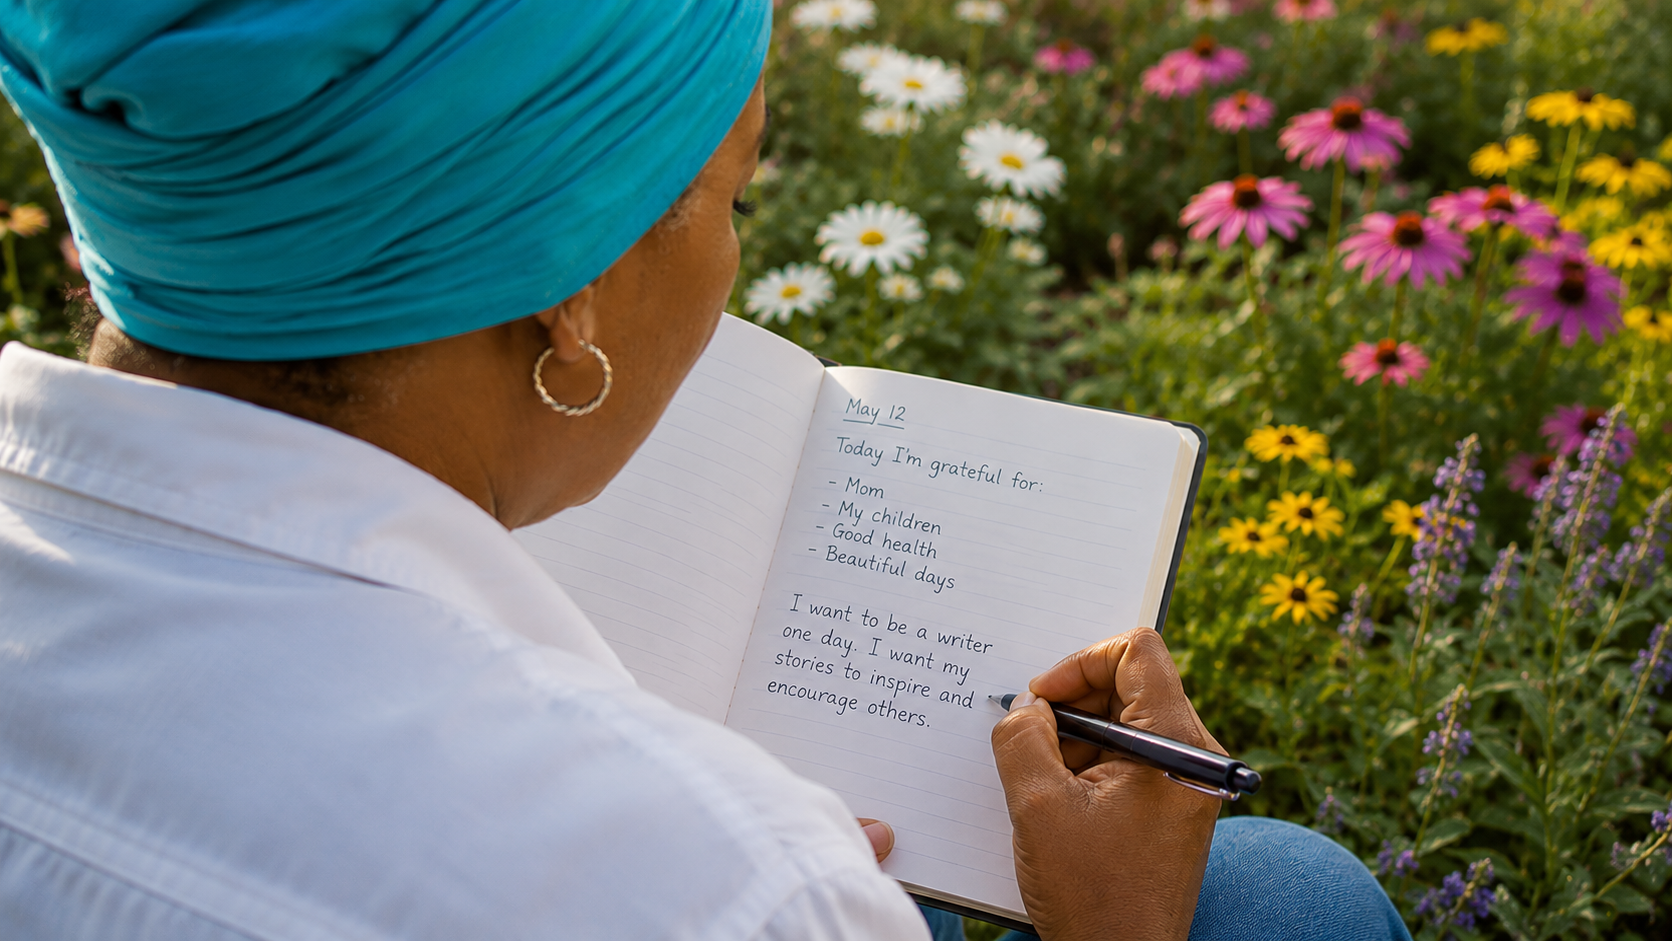 May 12
Today I'm grateful for:
- Mom
- My children
- Good health
- Beautiful days
I want to be a writer
one day. I want my
stories to inspire and
encourage others.